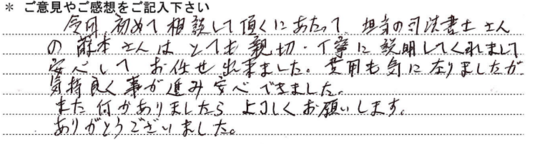 ＊ ご意見やご感想をご記入下さい
今回、初めて相談して頂くにあたって、担当の司法書士さん
の 藤本さんは とても 親切・丁寧に 説明してくれまして
安心して お任せ出来ました。費用も気になりましたが
気持良く事が進み安心できました。
また何かありましたら よろしくお願いします。
ありがとうございました。